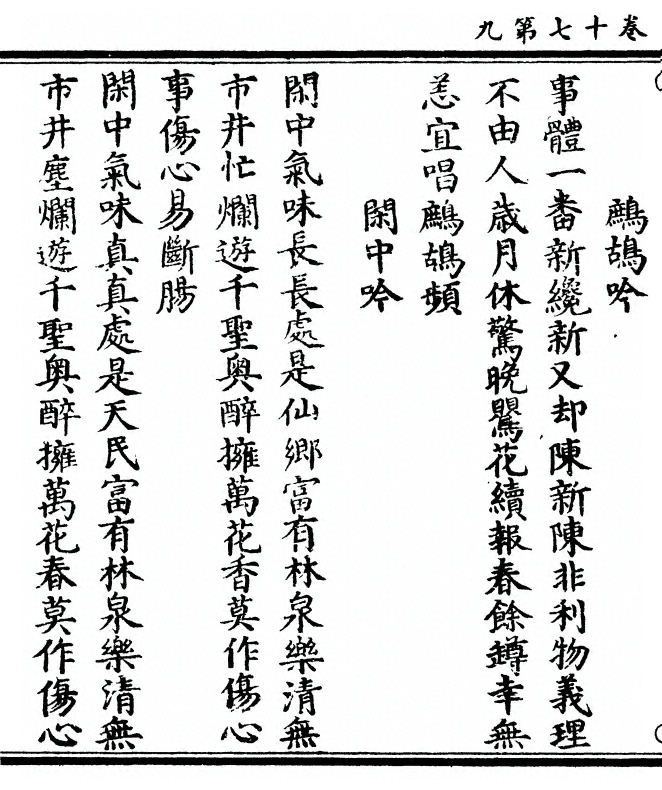 卷十七第九
鷓鴣吟
事體一番新纔新又却陳新陳非利物義理
不由人歲月休驚晚鸎花續報春餘罇幸無
恙宜唱鷓鴣頻
閑中吟
閑中氣味長長處是仙鄉富有林泉樂清無
市井忙爛遊千聖奧醉擁萬花香莫作傷心
事傷心易斷腸
閑中氣味真真處是天民富有林泉樂清無
市井塵爛遊千聖奧醉擁萬花春莫作傷心